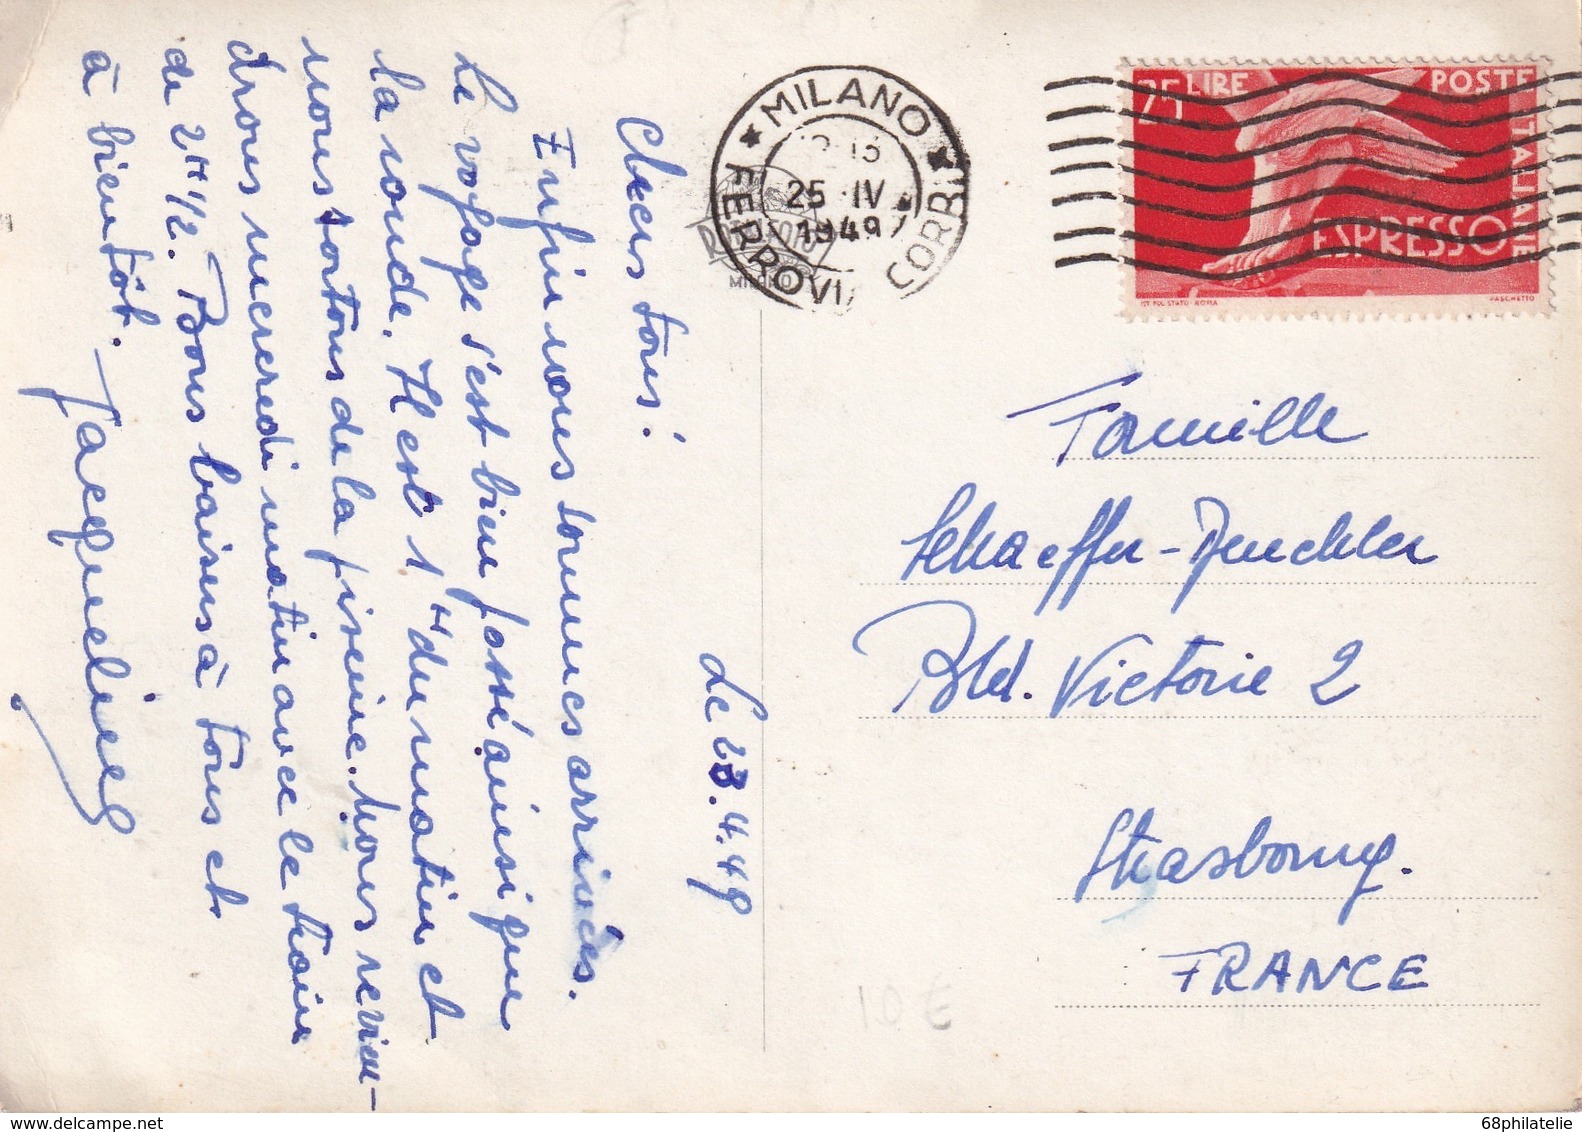 Le 23.4.49
Chers tous!
Enfin nous sommes arrivés.
Le voyage s'est bien passé ainsi que
la ronde. Il est 1H du matin et
nous sortons de la piscine. Nous revien-
drons mercredi matin avec le train
de 2H 1/2. Bons baisers à tous et
à bientôt. Jacqueline
MILANO
FERROVIA CORR
25 IV
1949
MILANO
25 LIRE
POSTE
ITALIANE
ESPRESSO
IST. POL. STATO - ROMA
PASCHETTO
Famille
Schaeffer-
Bld. Victoire 2
Strasbourg.
FRANCE
10 €
68philatelie
www.delcampe.net